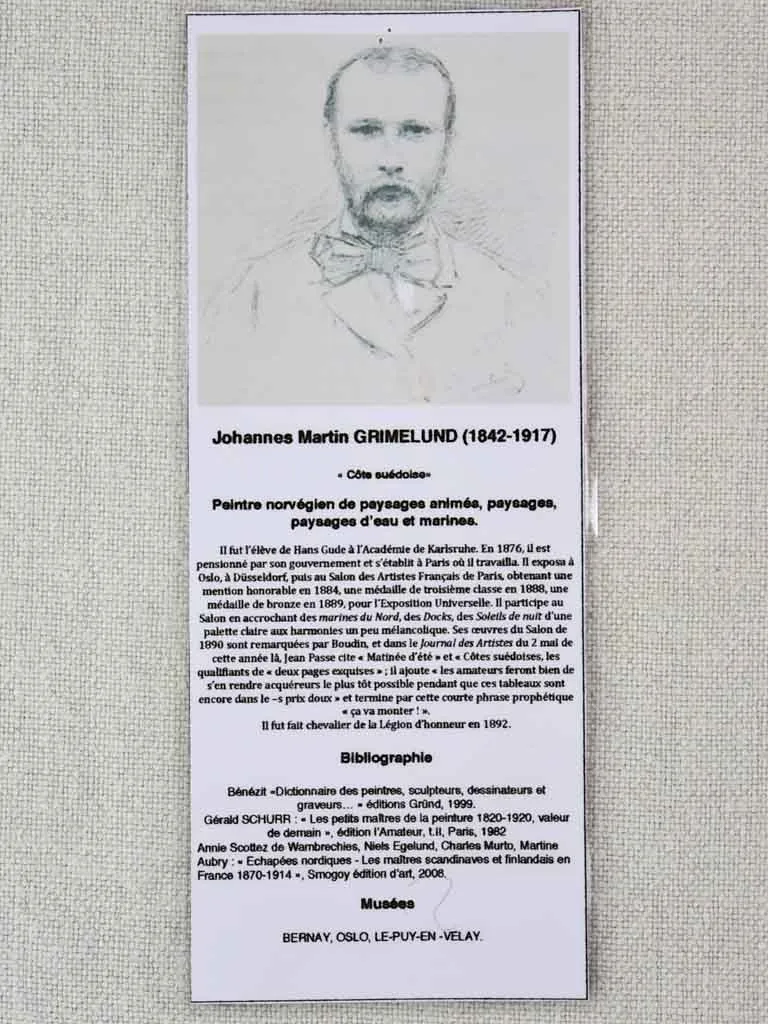 Johannes Martin GRIMELUND (1842-1917)
« Côte suédoise»
Peintre norvégien de paysages animés, paysages,
paysages d'eau et marines.
Il fut l'élève de Hans Gude à l'Académie de Karlsruhe. En 1876, il est
pensionné par son gouvernement et s'établit à Paris où il travailla. Il exposa à
Oslo, à Düsseldorf, puis au Salon des Artistes Français de Paris, obtenant une
mention honorable en 1884, une médaille de troisième classe en 1888, une
médaille de bronze en 1889, pour l'Exposition Universelle. Il participe au
Salon en accrochant des marines du Nord, des Docks, des Soleils de nuit d'une
palette claire aux harmonies un peu mélancolique. Ses œuvres du Salon de
1890 sont remarquées par Boudin, et dans le Journal des Artistes du 2 mai de
cette année là, Jean Passe cite « Matinée d'été » et « Côtes suédoises, les
qualifiants de « deux pages exquises » ; il ajoute « les amateurs feront bien de
s'en rendre acquéreurs le plus tôt possible pendant que ces tableaux sont
encore dans le –s prix doux » et termine par cette courte phrase prophétique
« ça va monter ! ».
Il fut fait chevalier de la Légion d'honneur en 1892.
Bibliographie
Bénézit «Dictionnaire des peintres, sculpteurs, dessinateurs et
graveurs... » éditions Gründ, 1999.
Gérald SCHURR : « Les petits maîtres de la peinture 1820-1920, valeur
de demain », édition l'Amateur, t.II, Paris, 1982
Annie Scottez de Wambrechies, Niels Egelund, Charles Murto, Martine
Aubry : « Echapées nordiques - Les maîtres scandinaves et finlandais en
France 1870-1914 », Smogoy édition d'art, 2008.
Musées
BERNAY, OSLO, LE-PUY-EN -VELAY.